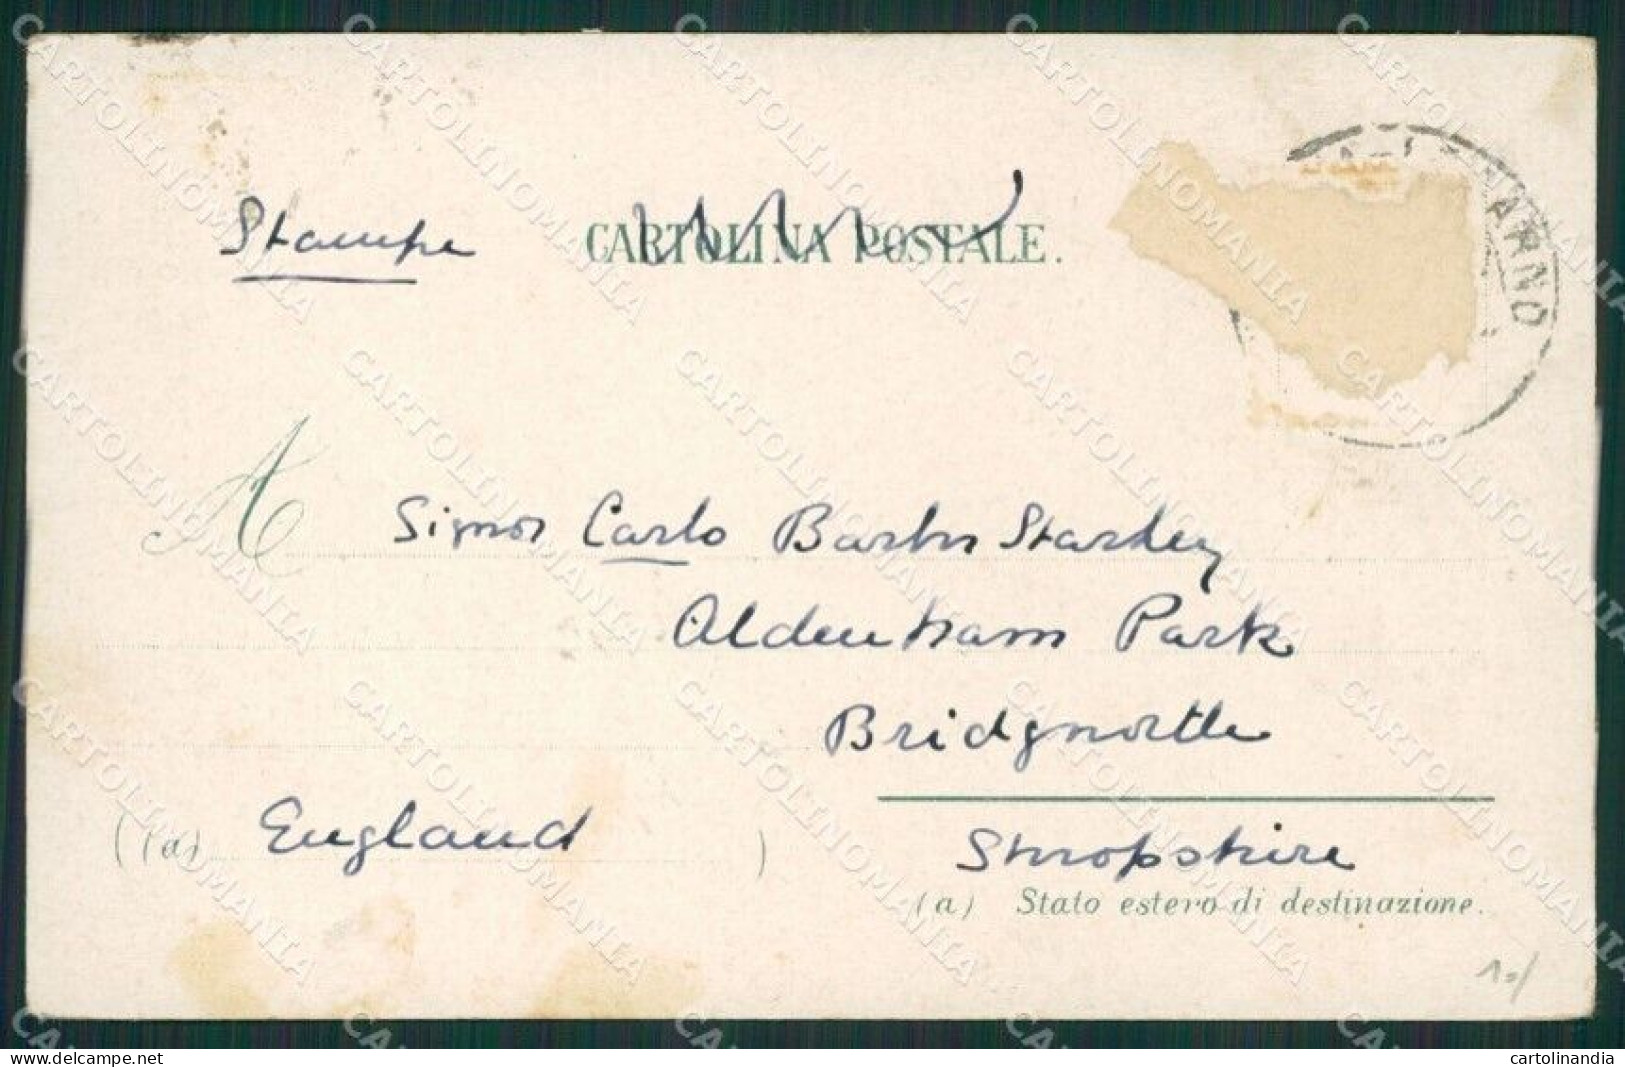 Stampe CARTOLINA POSTALE.
ARNO
Signor Carlo Barton Starkey
Aldenham Park
Bridgnorth
(a) England
Shropshire
(a) Stato estero di destinazione.
delcampe.net
cartolinandia